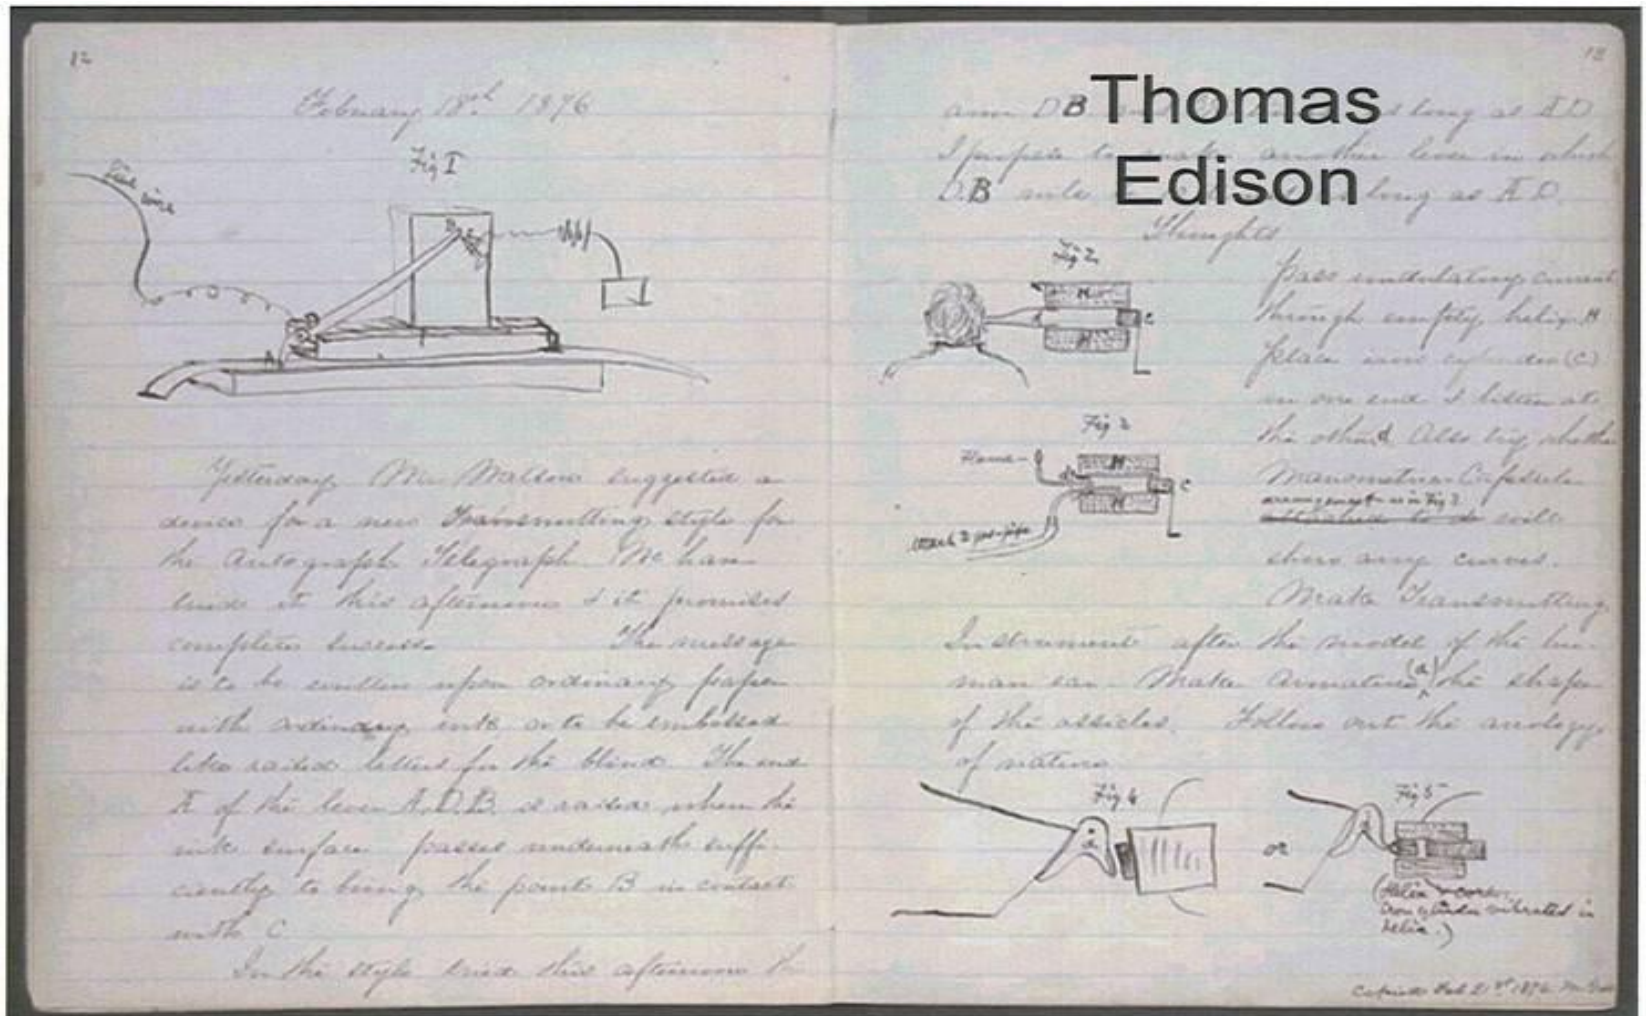 12
February 18th 1876
Fig I
wire
B
C
A
Yesterday Mr Watson suggested a
device for a new Transmitting style for
the Autograph Telegraph. We have
tried it this afternoon & it promises
complete success The message
is to be written upon ordinary paper
with ordinary ink or to be embossed
like raised letters for the blind The end
A of the lever A.D.B. is raised when the
ink surface passes underneath suffi-
ciently to bring the point B in contact
with C
In the style tried this afternoon the
13
Thomas
Edison
arm DB as long as A D
I propose to make another lever in which
D.B long as A D.
Thoughts
Fig 2
H
C
H
pass undulating current
through empty helix H
place iron cylinder (C)
in one end & listen at
the other. Also try whether
Manometric Capsule
arrangement as in Fig 3
attached to will
show any curves.
Fig 3
Flame
H
C
H
attach to gas-pipe
Make Transmitting
Instrument after the model of the hu-
man ear. Make Armature (a) the shape
of the ossicles. Follow out the analogy
of nature.
Fig 4
a
or
Fig 5
(Helix & core.
iron cylinder vibrated in
helix.)
Copied Feb 21st 1876